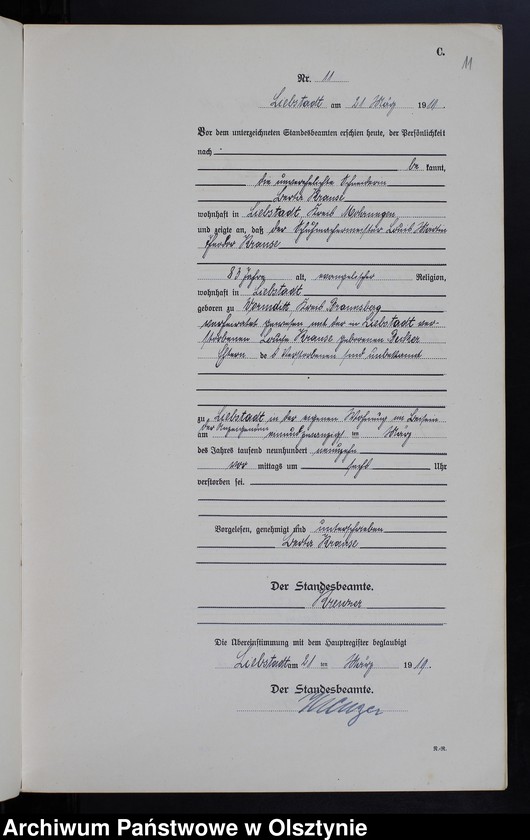 C.
11
Nr. 11
Liebstadt am 21 März 1919.
Vor dem unterzeichneten Standesbeamten erschien heute, der Persönlichkeit
nach
be kannt,
die unverehelichte Schneiderin
Berta Krause
wohnhaft in Liebstadt, Kreis Mohrungen,
und zeigte an, daß der Schuhmachermeister Louis Martin
Theodor Krause
83 Jahre alt, evangelischer Religion,
wohnhaft in Liebstadt
geboren zu Wormditt Kreis Braunsberg
verheiratet gewesen mit der in Liebstadt ver-
storbenen Louise Krause geborenen Decker
Eltern des Verstorbenen sind unbekannt
zu Liebstadt in der eigenen Wohnung im Beisein
der Anzeigenden
am einundzwanzigsten März
des Jahres tausend neunhundert neunzehn
vor mittags um sechs Uhr
verstorben sei.
Vorgelesen, genehmigt und unterschrieben
Berta Krause
Der Standesbeamte.
Die Übereinstimmung mit dem Hauptregister beglaubigt
Liebstadt am 21 ten März 1919.
Der Standesbeamte.
R.-R.
Archiwum Państwowe w Olsztynie